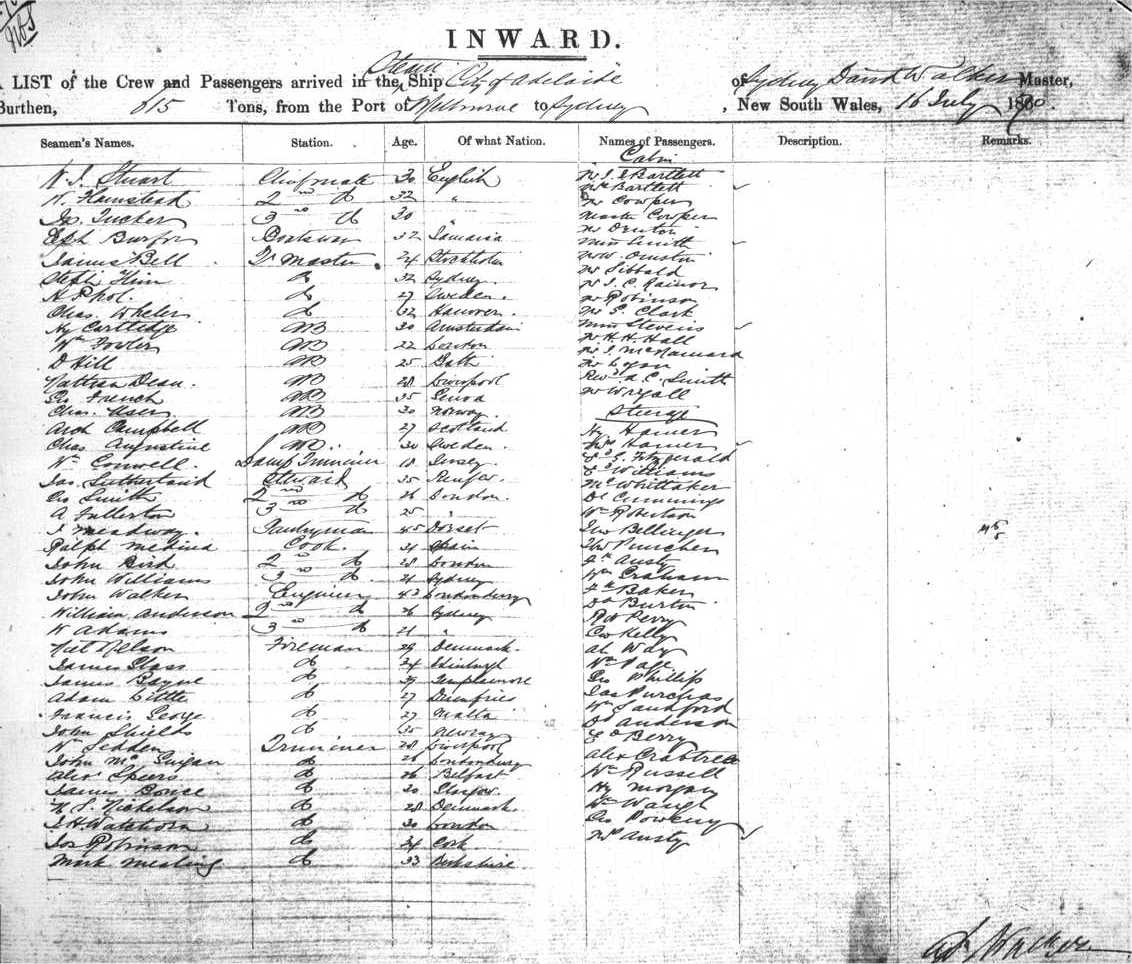 INWARD.
A LIST of the Crew and Passengers arrived in the Steam Ship City of Adelaide of Sydney David Walker Master,
Burthen, 815 Tons, from the Port of Melbourne to Sydney, New South Wales, 16 July 1870.
Seamen's Names. Station. Age. Of what Nation. Names of Passengers. Description. Remarks.
Cabin
W. J. Stuart Chief mate 30 English Mr J. E Bartlett
W. Hamstead 2nd do 32 " Mrs Bartlett
Jas. Tucker 3rd do 30 " Mr Cowper
Master Cowper
Eph Boatswain 32 Jamaica Mr Denton
James Bell Qr master 24 Stockholm Miss Smith
do 32 Sydney Mr W.
Mr Sibbald
do 27 Sweden. Mr J. C. Rainor
Chas. Wheler do 32 Hanover. Mr Robinson
Hy Cartledge AB 30 Amsterdam Mr S. Clark
Wm Fowler AB 22 London Miss Stevens
D Hill AB 25 Bath Mr H. H. Hall
Nathan Dean. AB 28 Liverpool Mr J. McNamara
Geo French AB 35 Genoa Mr Logan
Chas. User AB 30 Norway. Revd A. C. Smith
Arch Campbell AB 27 Scotland Mr Wrygall
Steerage
Chas Augustine AB. 30 Sweden. Hy Hamer
Wm Conwell Lamp Trimmer 18 Jersey. Mrs Hamer
Jas. Sutherland Steward 35 G. Fitzgerald
Geo Smith 2nd do 26 London. Williams
A Fullerton 3rd do 25 " Mc Whittaker
J Medway. Pantryman 45 Dorset Dl Cummings
Ralph Medina Cook. 34 Spain Wm Robertson
John Bird 2nd do 28 London Thos Bellinger
John Williams 3rd do 21 Sydney Thos Puncher
John Walker Engineer 43 Londonderry Austy
William Anderson 2nd do 26 Sydney Wm Graham
W Adams 3rd do 21 " Baker
Nelson Fireman 29 Denmark. Dd Burton
James Glass do 24 Edinburgh Perry
James Bayne do 39 Templemore Geo Kelly
Adam Little do 27 Dumfries Al Way
Francis George do 27 Malta Wm Page
John Shields do 30 Newry Geo Phillips
Wm Sedden Trimmer 28 Liverpool Jas Purchas
John McGuigan do 26 Londonderry Wm Sandford
Alexr Speers do 26 Belfast Dd Anderson
James do 30 Glasgow. E D Berry
N. S. Nickelson do 28 Denmark. Alex Crabtree
J. H. Watshorn do 30 London Wm Russell
Jos Robinson do 34 Cork Hy Morgan
Mark Mealing do 33 Berkshire Wm Waugh
Geo
Mrs Austy